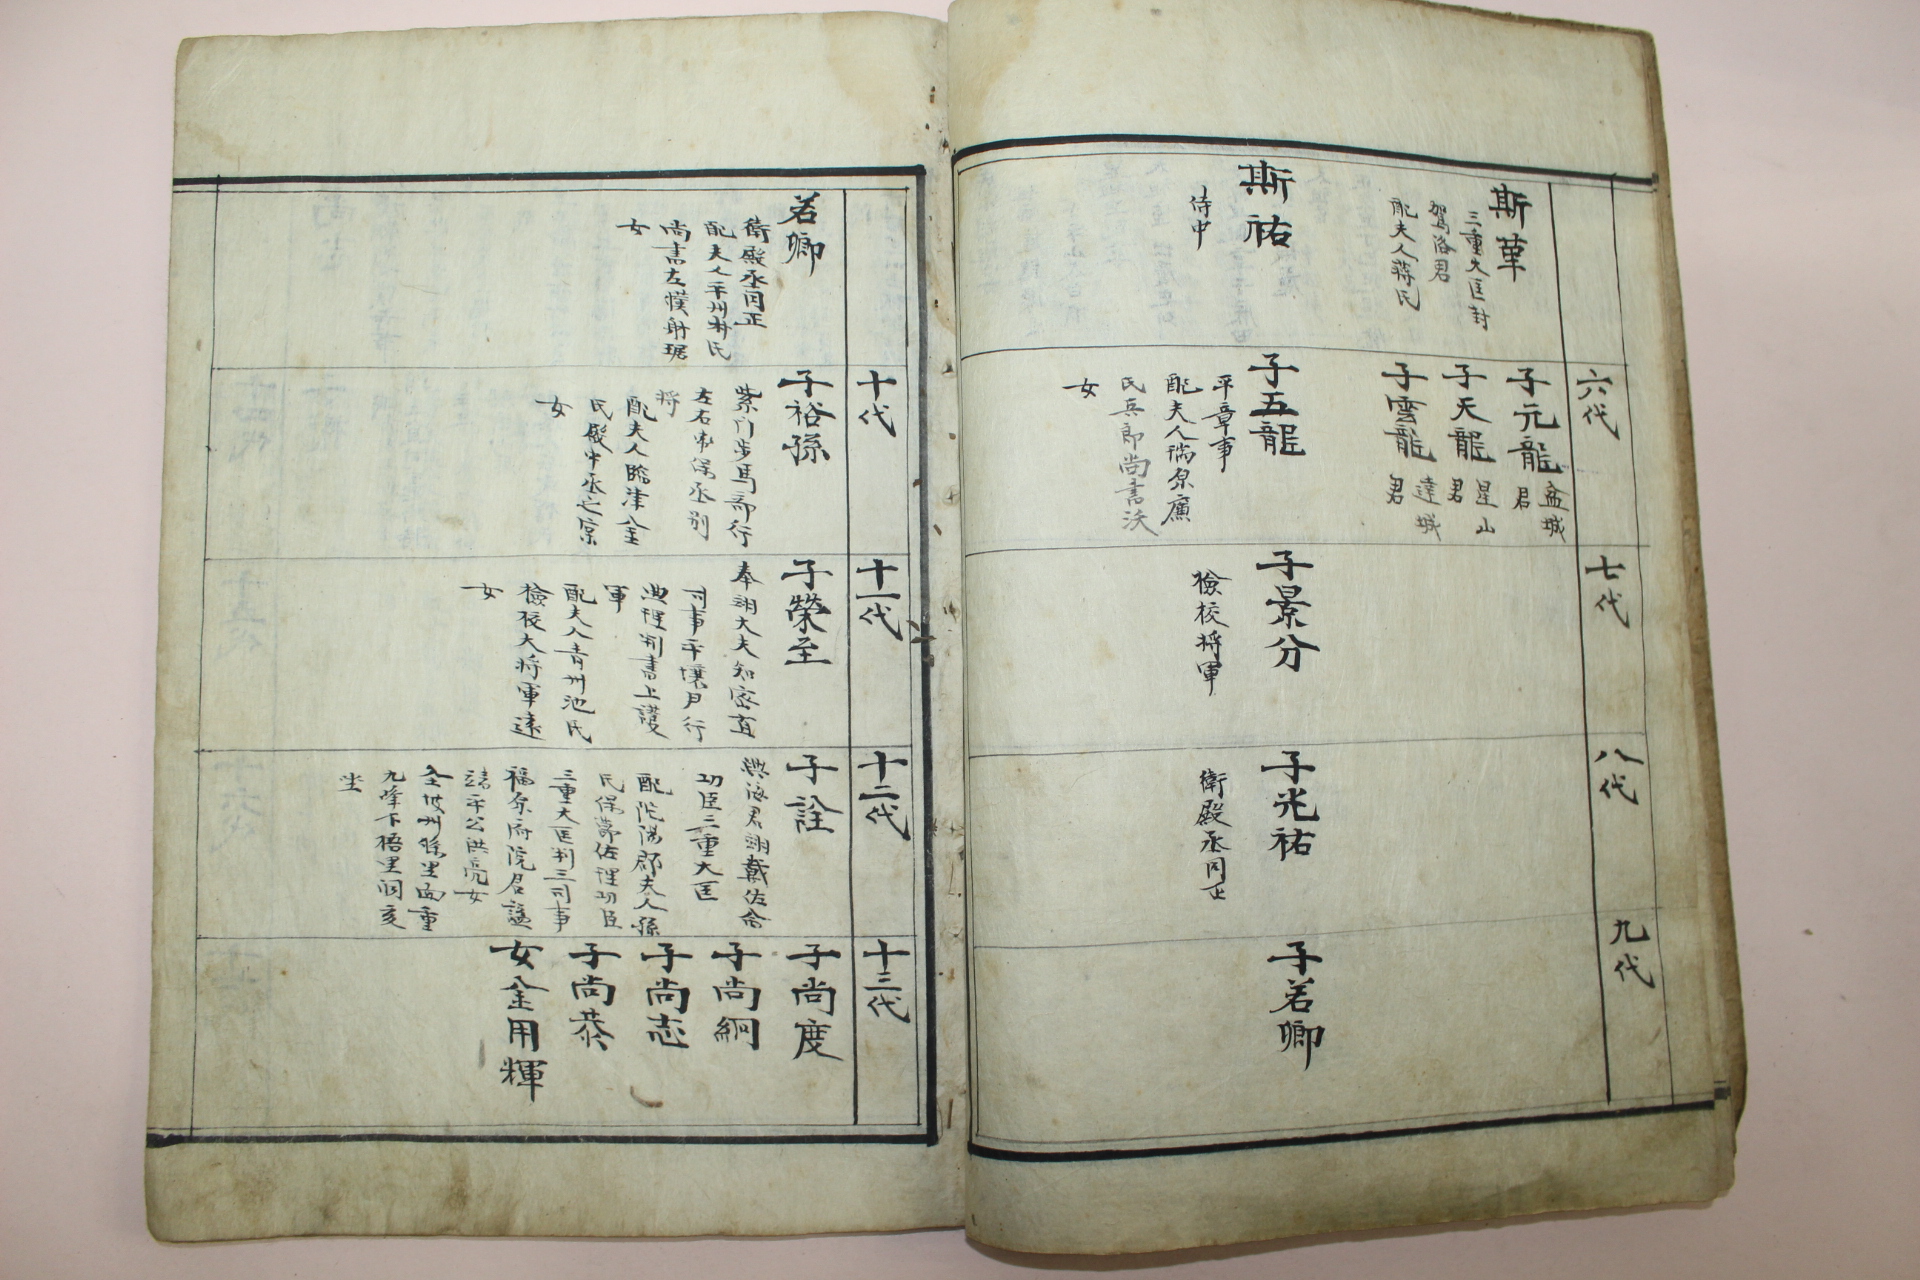 斯革
三重大匡封
駕洛君
配夫人蔣氏
斯祐
侍中
六代
子元龍
盆城
君
子天龍
星山
君
子雲龍
達城
君
子五龍
平章事
配夫人瑞原廉
氏兵郎尚書沃
女
七代
子景分
檢校將軍
八代
子光祐
衛殿丞同正
九代
子若卿
若卿
衛殿丞同正
配夫人平州朴氏
尚書左僕射琚
女
十代
子裕孫
紫門步馬 行
左右 保丞別
將
配夫人臨津金
氏殿中丞之宗
女
十一代
子榮至
奉翊大夫知密直
司事平壤尹行
典理判書上護
軍
配夫人青州池氏
檢校大將軍遠
女
十二代
子詮
興海君翊戴佐命
功臣三重大匡
配 陽郡夫人孫
氏保節佐理功臣
三重大匡判三司事
福原府院君謚
靖平公洪亮女
全坡州條里面重
九峰下梧里洞亥
坐
十三代
子尚度
子尚絅
子尚志
子尚恭
女金用輝